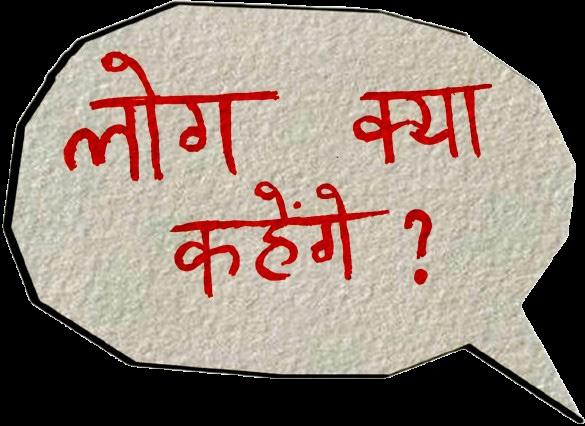 लोग क्या
कहेंगे ?